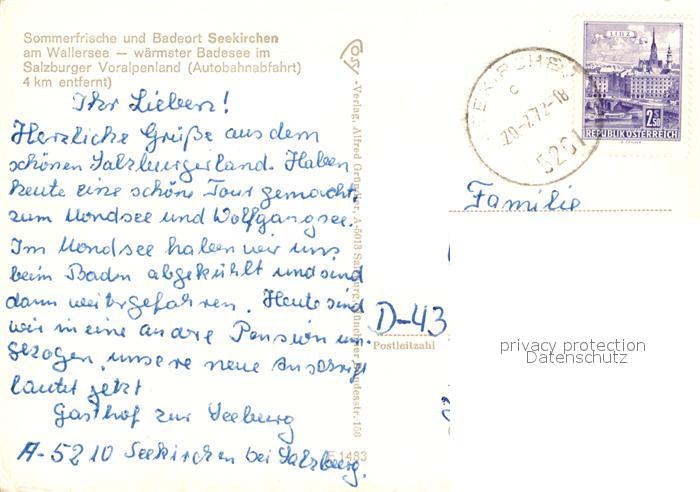 Sommerfrische und Badeort Seekirchen
am Wallersee — wärmster Badesee im
Salzburger Voralpenland (Autobahnabfahrt)
4 km entfernt)
Ihr Lieben!
Herzliche Grüße aus dem
schönen Salzburgerland. Haben
heute eine schöne Tour gemacht,
zum Mondsee und Wolfgangsee.
Im Mondsee haben wir uns
beim Baden abgekühlt und sind
dann weitergefahren. Heute sind
wir in eine andre Pension um-
gezogen, unsere neue Anschrift
lautet jetzt
Gasthof zur Seeburg
A-5210 Seekirchen bei Salzburg.
Verlag, Alfred Gründler, A-5013 Salzburg, Münchner Bundesstr. 156
1483
LINZ
2.50
REPUBLIK ÖSTERREICH
EKIRCHE
c
20-7.72-18
5201
Familie
D-43
Postleitzahl
privacy protection
Datenschutz